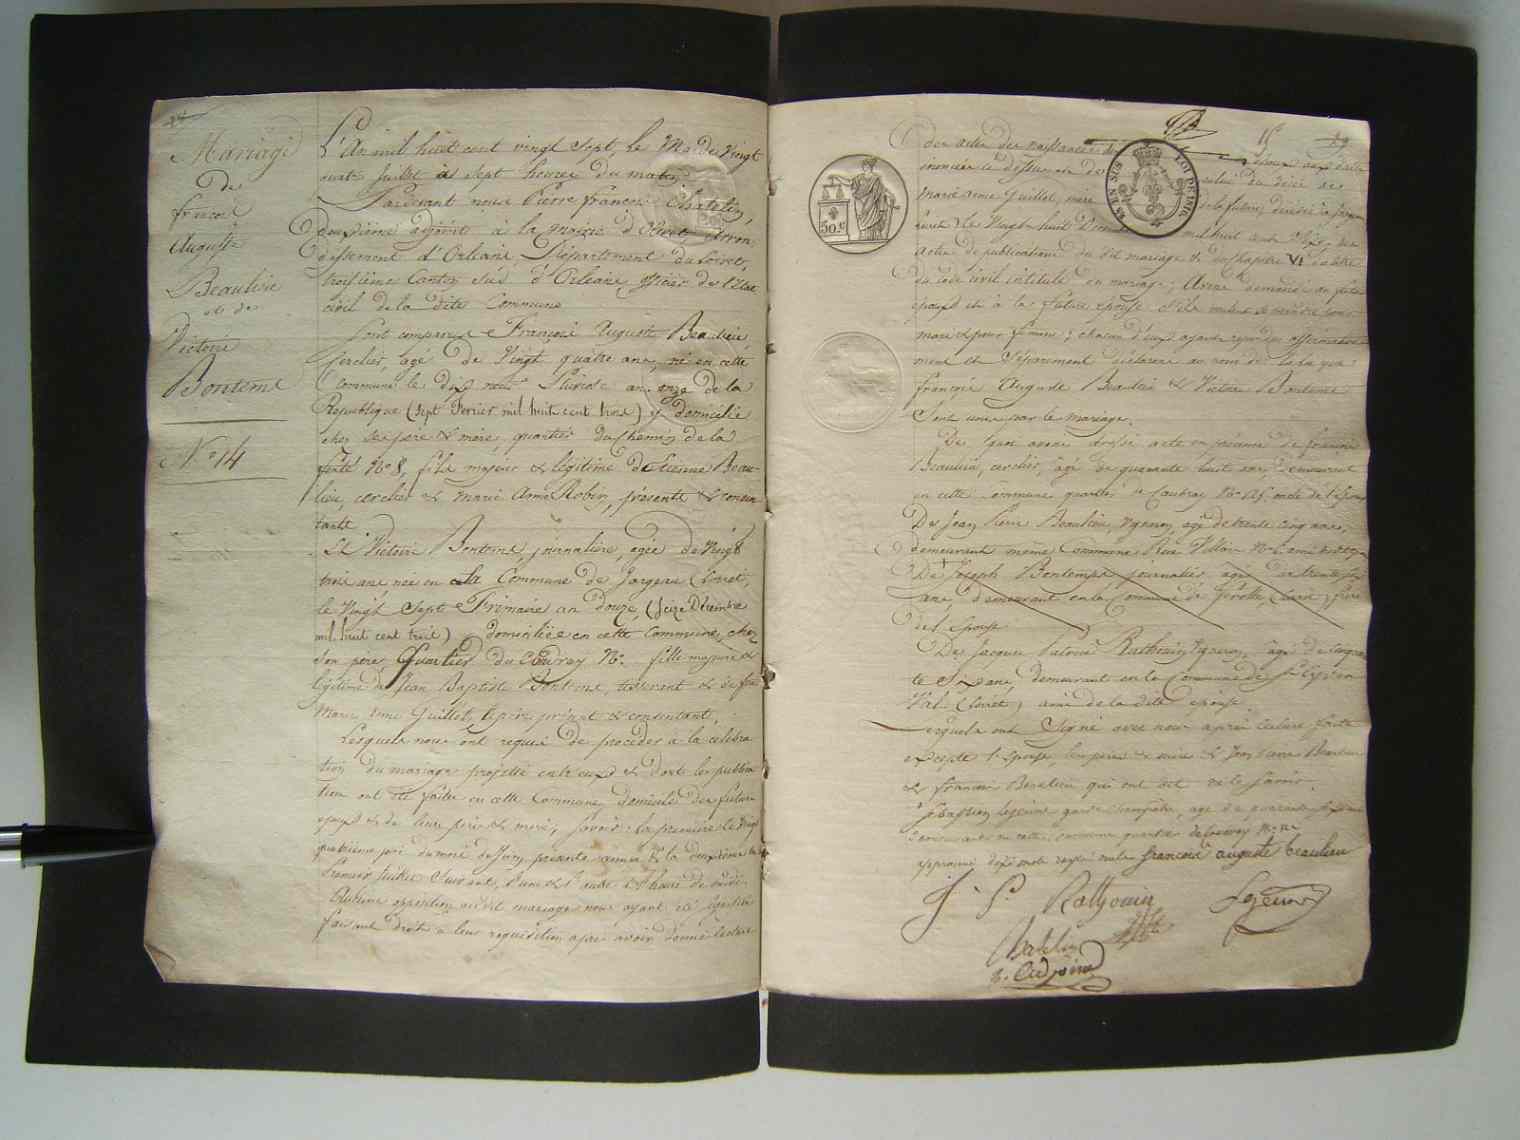 Mariage
de
françois
Auguste
Beaulieu
et de
Victoire
Bontems
N° 14
L'An mil huit cent vingt sept, le Mardi Vingt
quatre Juillet à sept heures du matin
Pardevant nous Pierre françois Chatelin,
deuxième adjoint à la mairie d'Olivet, Arron-
dissement d'Orléans, Département du Loiret,
troisième Canton Sud d'Orléans, officier de l'Etat
civil de la dite Commune
Sont comparus François Auguste Beaulieu
cerclier, agé de Vingt quatre ans, né en cette
Commune le dix neuf Pluviose an onze de la
Republique (sept fevrier mil huit cent trois) y domicilié
chez ses père & mère, quartier du chemin de la
ferté N° 8, fils majeur & légitime d'Etienne Beau-
lieu, cerclier & Marie Anne Robin, présents & consen-
tants
Et Victoire Bontems, journalière, agée de Vingt
trois ans, née en la Commune de Jargeau (Loiret),
le Vingt Sept Frimaire an douze, (seize Décembre
mil huit cent trois) domiciliée en cette Commune, chez
son père, Quartier du Coudray N° fille majeure &
légitime de Jean Baptiste Bontems, tisserant & de feu
Marie Anne Guillet, le père présent & consentant,
Lesquels nous ont requis de procéder à la célébra-
tion du mariage projetté entre eux & dont les publica-
tion ont été faites en cette Commune, domicile des futurs
epoux & de leurs père & mère, savoir: la première le Vingt
quatrième jour du mois de Juin présente année & la deuxième le
Premier Juillet Suivant, l'une & l'autre à l'heure de midi.
Aucune opposition au dit mariage nous ayant été signifiée
faisant droit à leur requisition après avoir donné lecture
30 c
EN SUS
LOI DE 1816
Des actes de naissance des
Marie Anne Guillet, mère de la future, décédée à
Loiret le Vingt huit mil huit cent
actes de publications du dit mariage & du chapitre VI du titre
du Code Civil intitulé du mariage; Avons demandé au futur
epoux et à la future épouse s'ils veulent se prendre pour
mari et pour femme; chacun d'eux ayant répondu affirmative-
ment et Séparement déclarons au nom de la loi que
françois Auguste Beaulieu & Victoire Bontems
Sont unis par le mariage.
De quoi avons dressé acte en présence de françois
Beaulieu, cerclier, agé de quarante huit ans, demeurant
en cette Commune quartier du Coudray N° oncle de l'époux
De Jean Pierre Beaulieu, Vigneron, agé de trente cinq ans,
demeurant même Commune Rue
De Joseph Bontemps journalier, agé de trente
ans, demeurant en la Commune de (Loiret) frère
de l'Epouse
De Jacques Patrice Rathouin, Vigneron, agé de cinquan-
te Six ans, demeurant en la Commune de St Cyr en
Val (Loiret), ami de la dite épouse
Lesquels ont Signé avec nous après lecture faite
excepté l'épouse, les père & mère & Jean Pierre Beaulieu
& françois Beaulieu qui ont dit ne le savoir.
Sébastien Legeine garde champêtre, agé de quarante
demeurant en cette commune quartier du Coudray
approuvé dix mots rayés nuls françois auguste beaulieu
J. P. Rathouin
Chatelin
adjoint